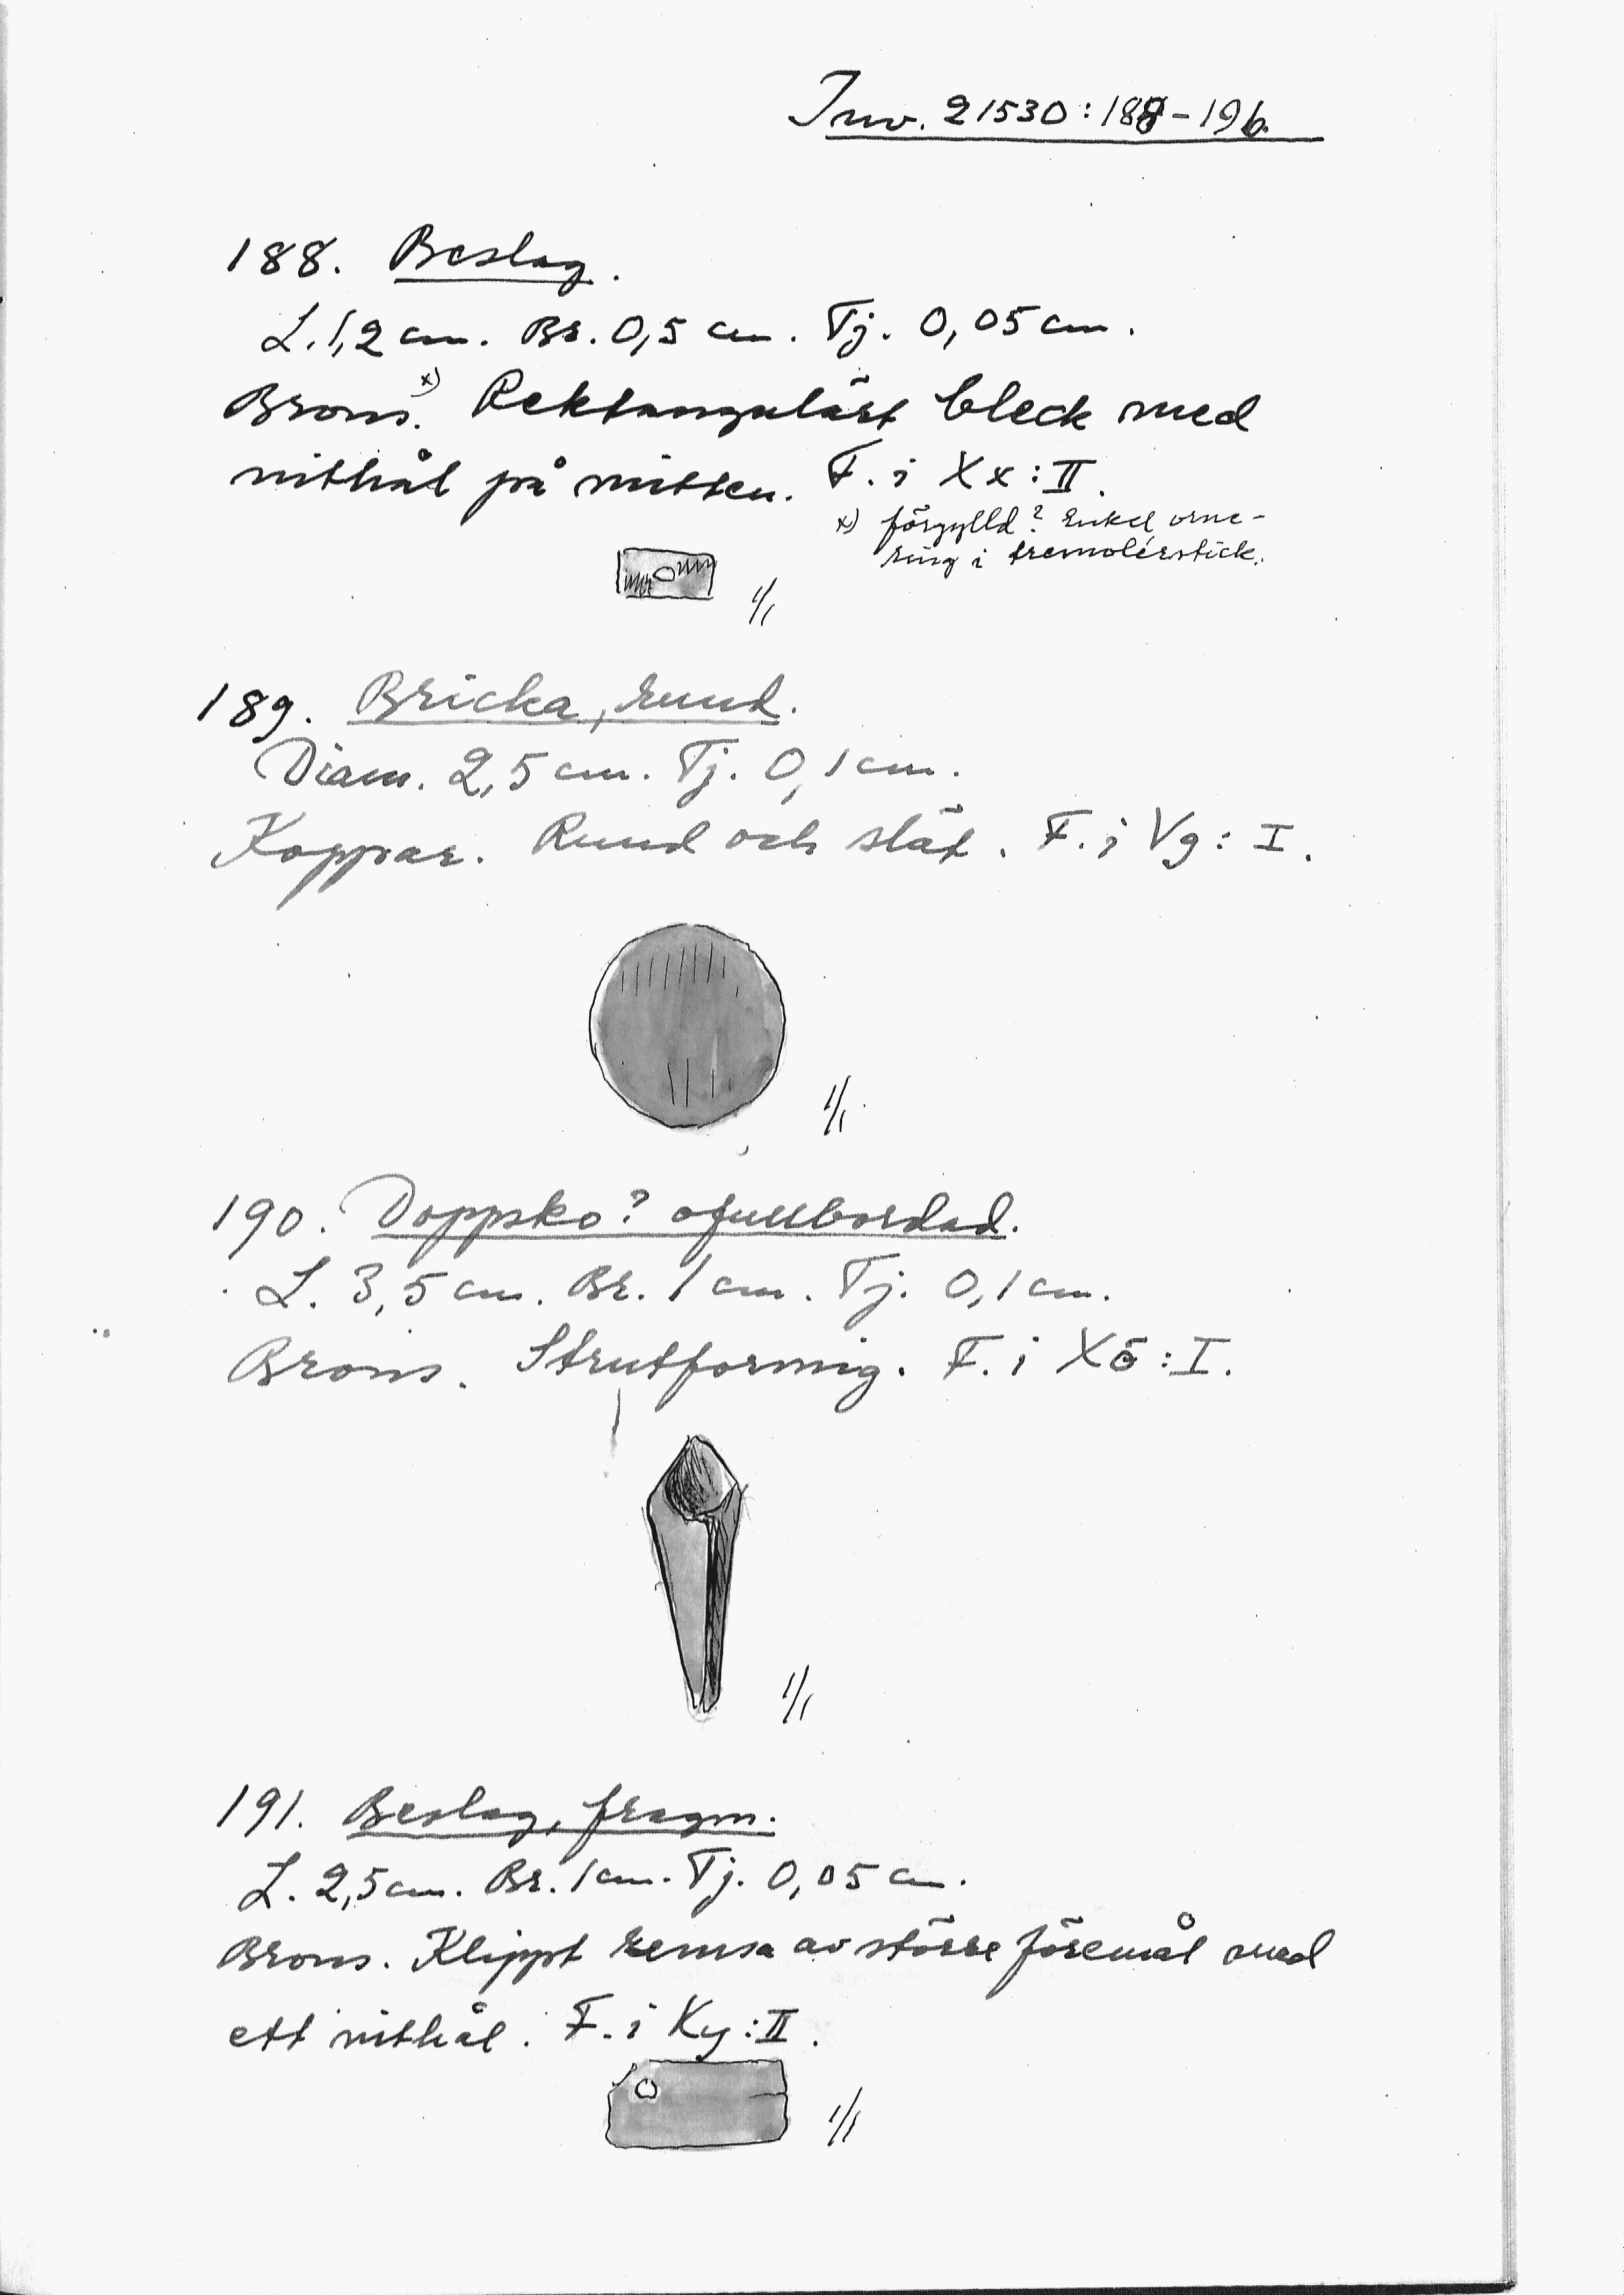 Inv. 21530:188-196
188. Beslag.
L. 1,2 cm. Br. 0,5 cm. Tj. 0,05 cm.
Brons.x) Rektangulärt bleck med
nithål på mitten. F. i Xx:II.
x) förgylld? Enkel orne-
ring i tremolérstick.
1/1
189. Bricka, rund.
Diam. 2,5 cm. Tj. 0,1 cm.
Koppar. Rund och slät. F. i Vg: I.
1/1
190. Doppsko? ofullbordad.
L. 3,5 cm. Br. 1 cm. Tj. 0,1 cm.
Brons. Strutformig. F. i Xö:I.
1/1
191. Beslag, fragm.
L. 2,5 cm. Br. 1 cm. Tj. 0,05 cm.
Brons. Klippt remsa av större föremål med
ett nithål. F. i Ky:II.
1/1